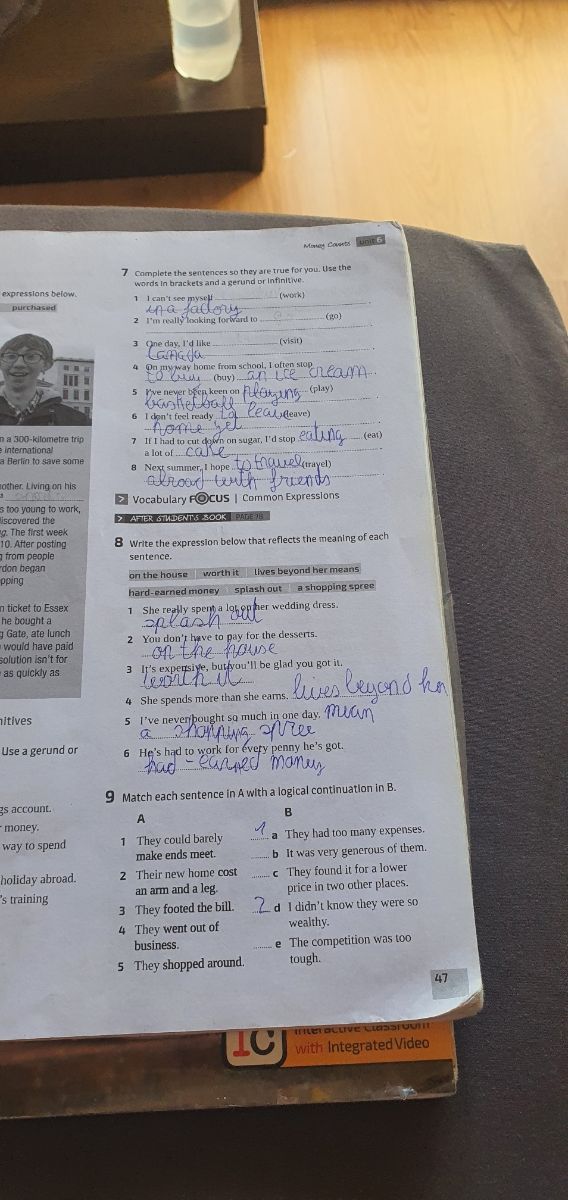 Money Counts unit 6
expressions below.
purchased
n a 300-kilometre trip
e international
a Berlin to save some
other. Living on his
s too young to work,
iscovered the
g. The first week
10. After posting
g from people
rdon began
pping
n ticket to Essex
he bought a
g Gate, ate lunch
would have paid
solution isn't for
as quickly as
nitives
Use a gerund or
gs account.
r money.
way to spend
holiday abroad.
's training
7 Complete the sentences so they are true for you. Use the
words in brackets and a gerund or infinitive.
1 I can't see myself (work)
in a factory
2 I'm really looking forward to (go)
3 One day, I'd like (visit)
Canada
4 On my way home from school, I often stop
to buy (buy) an ice cream
5 I've never been keen on playing (play)
basketball
6 I don't feel ready to leave (leave)
home yet
7 If I had to cut down on sugar, I'd stop eating (eat)
a lot of cake
8 Next summer, I hope to travel (travel)
abroad with friends
Vocabulary FOCUS | Common Expressions
AFTER STUDENT'S BOOK PAGE 78
8 Write the expression below that reflects the meaning of each
sentence.
on the house worth it lives beyond her means
hard-earned money splash out a shopping spree
1 She really spent a lot on her wedding dress.
splash out
2 You don't have to pay for the desserts.
on the house
3 It's expensive, but you'll be glad you got it.
worth it
4 She spends more than she earns. lives beyond her
mean
5 I've never bought so much in one day.
a shopping spree
6 He's had to work for every penny he's got.
had-earned money
9 Match each sentence in A with a logical continuation in B.
A
1 They could barely
make ends meet.
2 Their new home cost
an arm and a leg.
3 They footed the bill.
4 They went out of
business.
5 They shopped around.
B
1 a They had too many expenses.
b It was very generous of them.
c They found it for a lower
price in two other places.
2 d I didn't know they were so
wealthy.
e The competition was too
tough.
47
IC Interactive Classroom
with Integrated Video